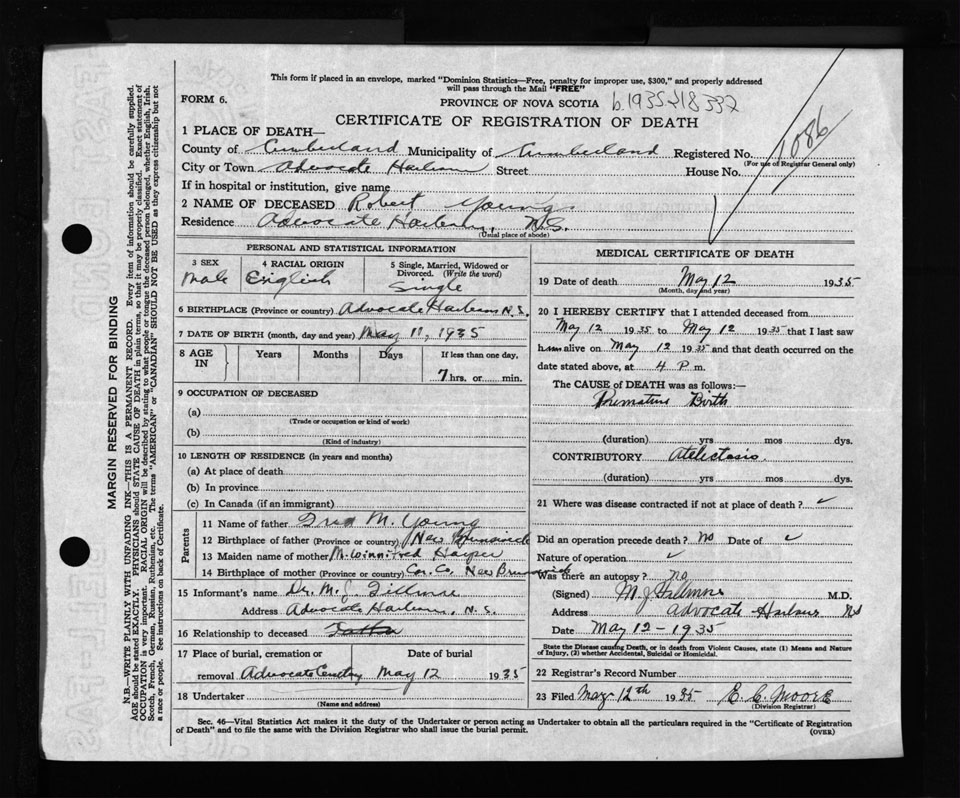 This form if placed in an envelope, marked "Dominion Statistics—Free, penalty for improper use, $300," and properly addressed
will pass through the Mail "FREE"
FORM 6.
PROVINCE OF NOVA SCOTIA b.1935-418332
CERTIFICATE OF REGISTRATION OF DEATH
1086
1 PLACE OF DEATH—
County of Cumberland Municipality of Cumberland Registered No.
(For use of Registrar General only)
City or Town Advocate Harbour Street House No.
If in hospital or institution, give name
2 NAME OF DECEASED Robert Young
Residence Advocate Harbour, N.S.
(Usual place of abode)
PERSONAL AND STATISTICAL INFORMATION
3 SEX 4 RACIAL ORIGIN 5 Single, Married, Widowed or
Divorced. (Write the word)
Male English Single
6 BIRTHPLACE (Province or country) Advocate Harbour N.S.
7 DATE OF BIRTH (month, day and year) May 11, 1935
8 AGE IN Years Months Days If less than one day,
7 hrs. or min.
9 OCCUPATION OF DECEASED
(a)
(Trade or occupation or kind of work)
(b)
(Kind of industry)
10 LENGTH OF RESIDENCE (in years and months)
(a) At place of death
(b) In province
(c) In Canada (if an immigrant)
Parents
11 Name of father M. Young
12 Birthplace of father (Province or country) New Brunswick
13 Maiden name of mother M. Winnifred Harper
14 Birthplace of mother (Province or country) Car. Co, New Brunswick
15 Informant's name Dr. M. J. Fillmore
Address Advocate Harbour, N.S.
16 Relationship to deceased Father
17 Place of burial, cremation or Date of burial
removal Advocate Cemtry May 12 1935
18 Undertaker
(Name and address)
MEDICAL CERTIFICATE OF DEATH
19 Date of death May 12 1935
(Month, day and year)
20 I HEREBY CERTIFY that I attended deceased from
May 12 1935 to May 12 1935 that I last saw
him alive on May 12 1935 and that death occurred on the
date stated above, at 4 P m.
The CAUSE of DEATH was as follows:—
Premature Birth
(duration) yrs mos dys.
CONTRIBUTORY Atelectasis
(duration) yrs mos dys.
21 Where was disease contracted if not at place of death? ✓
Did an operation precede death? no Date of ✓
Nature of operation ✓
Was there an autopsy? no
(Signed) M J Fillmore M.D.
Address Advocate Harbour NS
Date May 12 - 1935
State the Disease causing Death, or in death from Violent Causes, state (1) Means and Nature
of Injury, (2) whether Accidental, Suicidal or Homicidal.
22 Registrar's Record Number
23 Filed May 12th 1935 E. C. Moore
(Division Registrar)
Sec. 46—Vital Statistics Act makes it the duty of the Undertaker or person acting as Undertaker to obtain all the particulars required in the "Certificate of Registration
of Death" and to file the same with the Division Registrar who shall issue the burial permit.
(OVER)
MARGIN RESERVED FOR BINDING
N.B.—WRITE PLAINLY WITH UNFADING INK—THIS IS A PERMANENT RECORD. Every item of information should be carefully supplied.
AGE should be stated EXACTLY. PHYSICIANS should STATE CAUSE OF DEATH in plain terms, so that it may be properly classified. Exact statement of
OCCUPATION is very important. RACIAL ORIGIN will be described by stating to what people or tongue the deceased person belonged, whether English, Irish,
Scotch, French, German, Russian, Ruthenian, etc. The terms "AMERICAN" or "CANADIAN" SHOULD NOT BE USED as they express citizenship but not
a race or people. See instructions on back of Certificate.